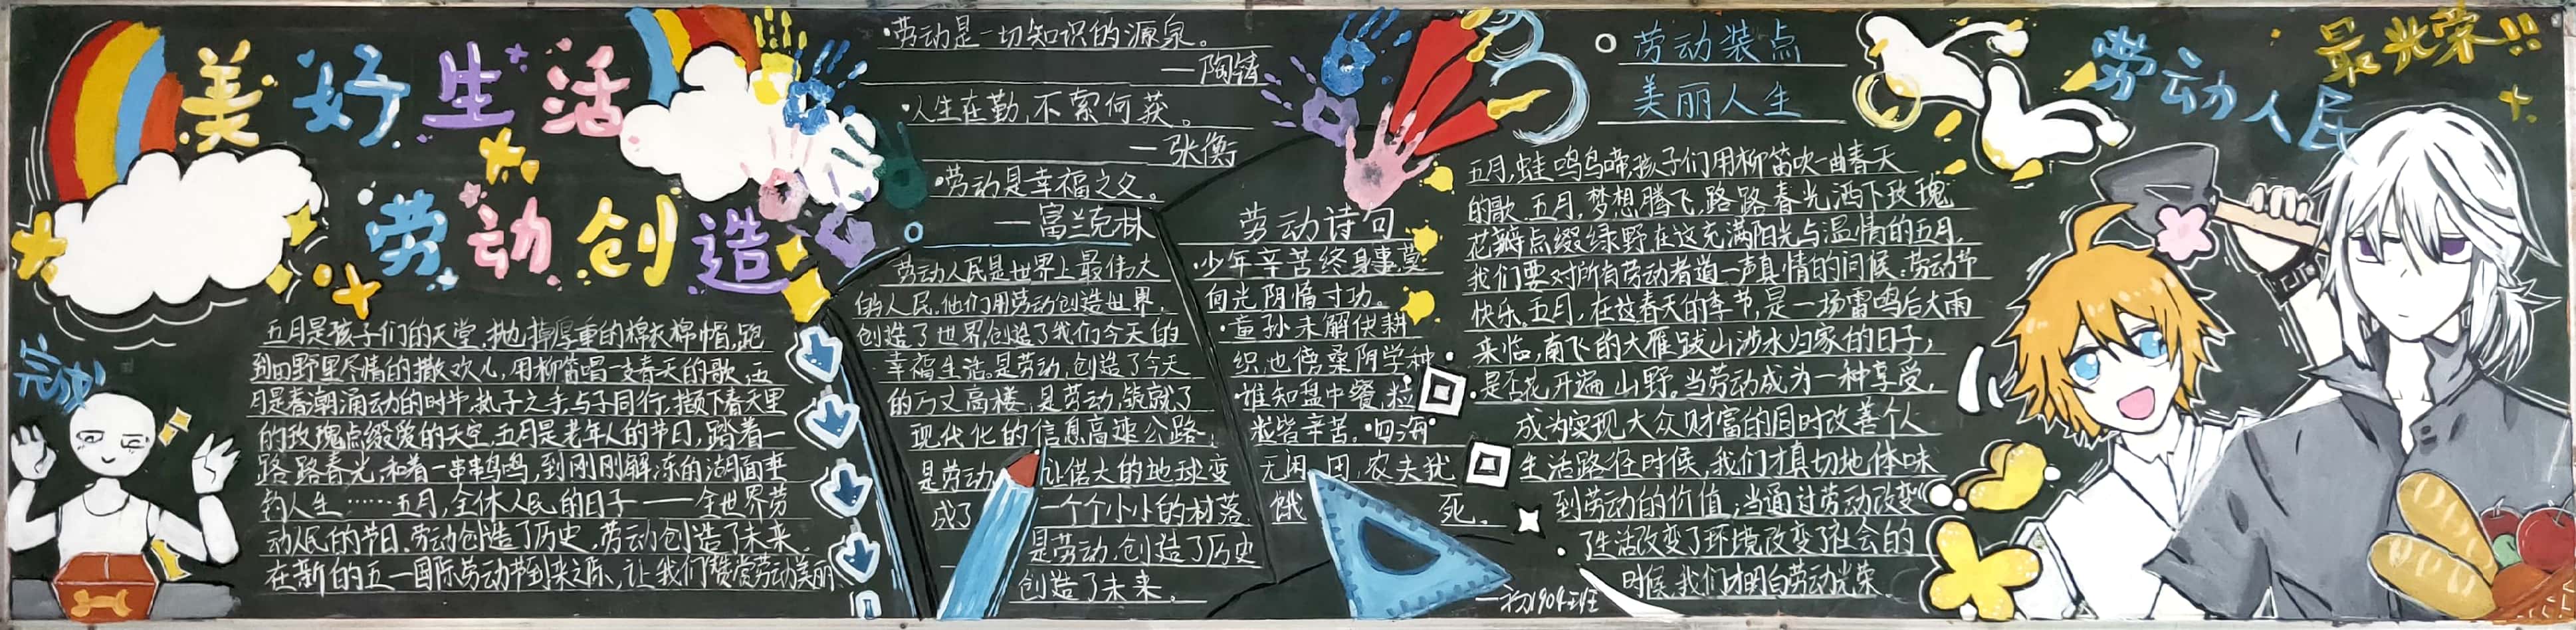 美好生活
劳动创造
完成!
五月是孩子们的天堂,抛掉厚重的棉衣棉帽,跑
到田野里尽情的撒欢儿,用柳笛唱一支春天的歌,五
月是春潮涌动的时节,执子之手,与子同行,撷下春天里
的玫瑰点缀爱的天空,五月是老年人的节日,踏着一
路路春光,和着一串串鸟鸣,到刚刚解冻的湖面垂
钓人生……五月,全体人民的日子——全世界劳
动人民的节日,劳动创造了历史,劳动创造了未来。
在新的五一国际劳动节到来之际,让我们赞赏劳动美丽
·劳动是一切知识的源泉。
—陶铸
·人生在勤,不索何获。
—张衡
·劳动是幸福之父。
—富兰克林
劳动人民是世界上最伟大
的人民,他们用劳动创造世界,
创造了世界,创造了我们今天的
幸福生活。是劳动,创造了今天
的万丈高楼,是劳动,筑就了
现代化的信息高速公路,
是劳动让偌大的地球变
成了一个个小小的村落
是劳动,创造了历史
创造了未来。
劳动诗句
·少年辛苦终身事,莫
向光阴惰寸功。
·童孙未解供耕
织,也傍桑阴学种
·谁知盘中餐,粒
粒皆辛苦。·四海
无闲田,农夫犹
饿死。
劳动装点
美丽人生
五月,蛙鸣鸟啼,孩子们用柳笛吹一曲春天
的歌,五月,梦想腾飞,路路春光洒下玫瑰
花瓣点缀绿野,在这充满阳光与温情的五月,
我们要对所有劳动者道一声真情的问候:劳动节
快乐。五月,在这春天的季节,是一场雷鸣后大雨
来临,南飞的大雁跋山涉水归家的日子,
是否花开遍山野。当劳动成为一种享受,
成为实现大众财富的同时改善个人
生活路径时候,我们才真切地体味
到劳动的价值,当通过劳动改变
了生活改变了环境改变了社会的
时候,我们才明白劳动光荣
—初1904班
劳动人民
最光荣!!